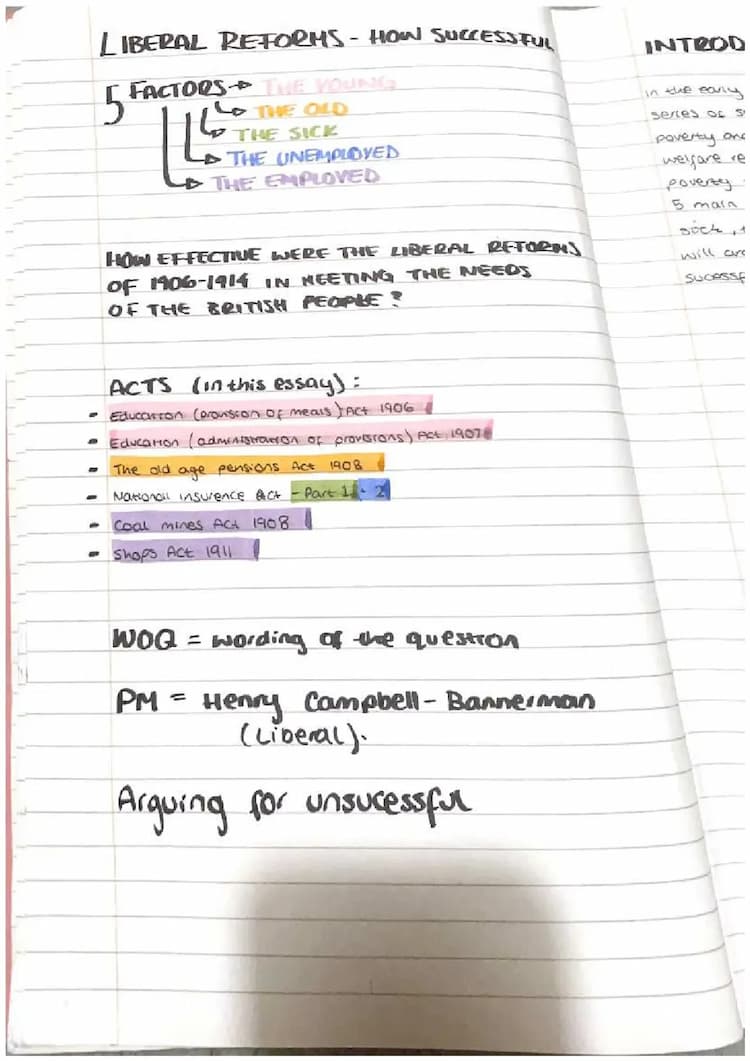 LIBERAL REFORMS - HOW SUCCESSFUL
5 FACTORS → THE YOUNG
THE OLD
THE SICK
THE UNEMPLOYED
THE EMPLOYED
HOW EFFECTIVE WERE THE LIBERAL REFORMS
OF 1906-1914 IN MEETING THE NEEDS
OF THE BRITISH PEOPLE?
ACTS (in this essay):
- Education (provision of meals) Act 1906
- Education (administration of provisions) Act 1907
- The old age pensions Act 1908
- National insurence Act - Part 1 - 2
- Coal mines Act 1908
- Shops Act 1911
WOQ = wording of the question
PM = Henry Campbell-Bannerman
(Liberal).
Arguing for unsucessful
INTROD
in the early
series of s
poverty and
welfare re
poverty
5 main
sick, t
will
sucessf